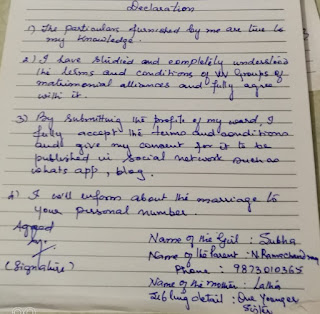 Declaration
1) The particulars furnished by me are true to
my knowledge.
2) I have studied and completely understood
the terms and conditions of VV Groups of
matrimonial alliances and fully agree
with it.
3) By submitting the profile of my ward, I
fully accept the terms and conditions
and give my consent for it to be
published in social network such as
whats app, blog.
4) I will inform about the marriage to
your personal number.
Agreed
(Signature)
Name of the Girl : Subha
Name of the Parent : N. Ramachandran
Phone : 9873010365
Name of the mother : Latha
Sibling detail : One Younger
Sister